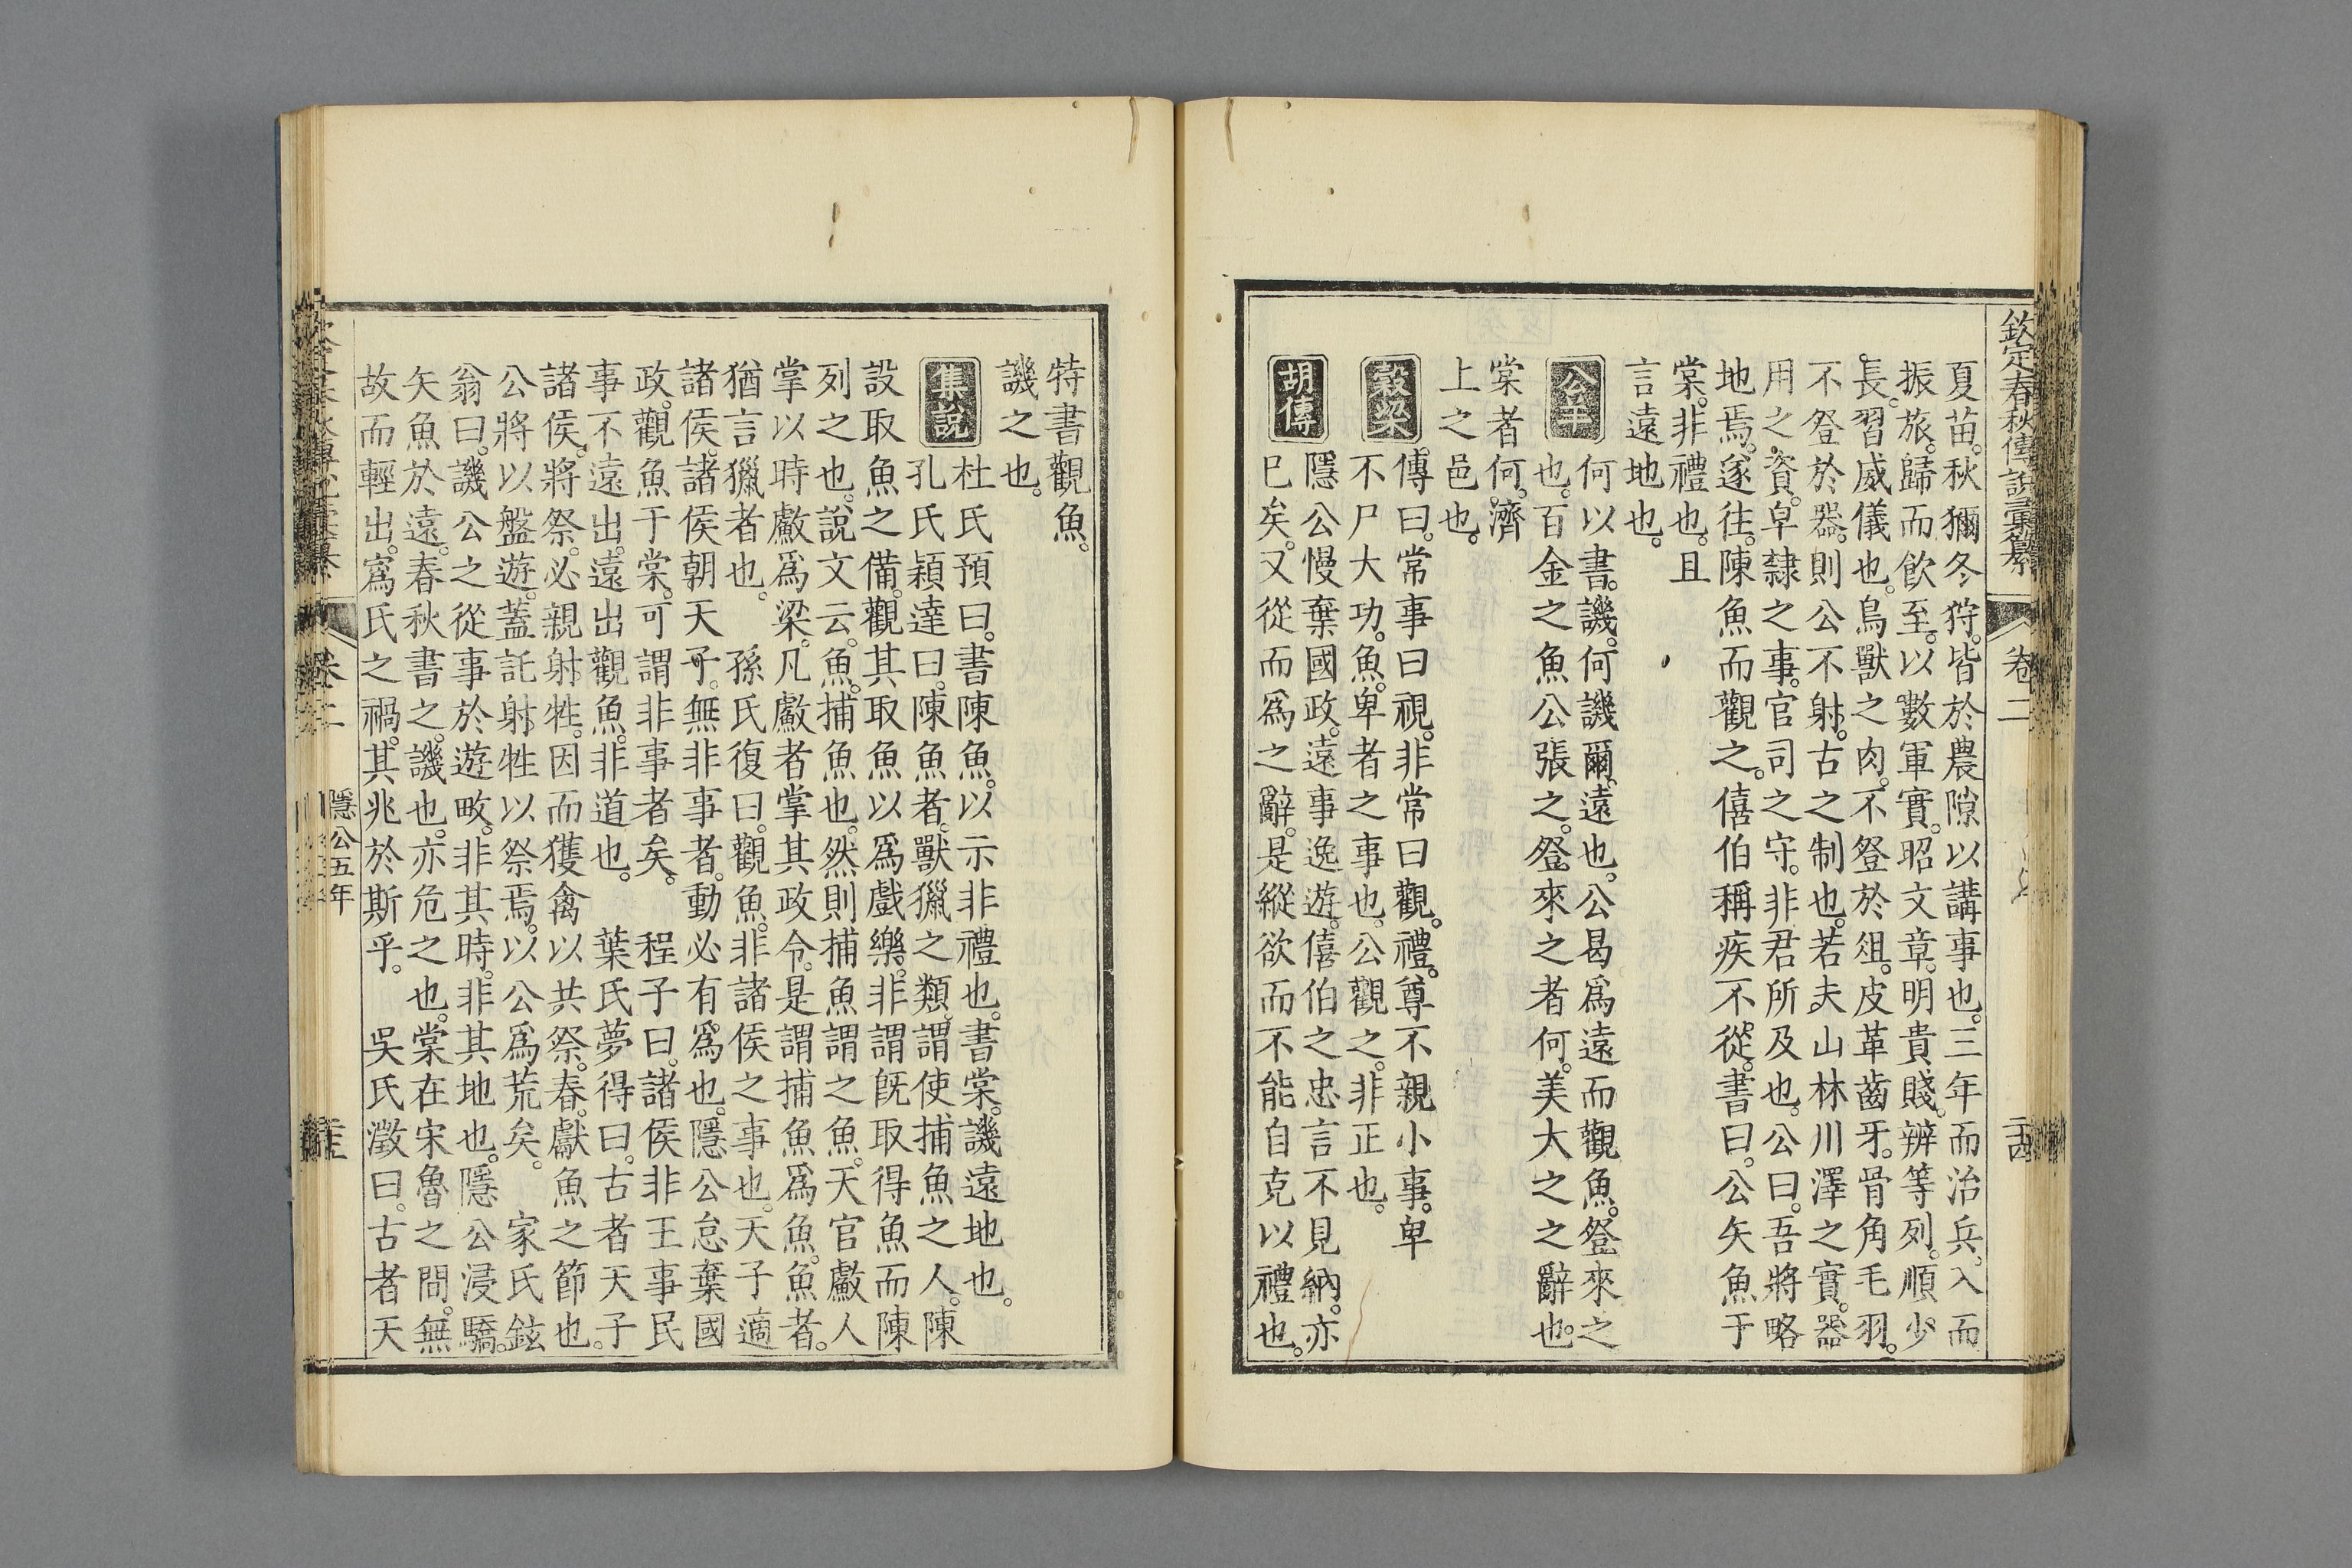 欽定春秋傳說彙纂 卷二 二十四
夏苗。秋獮冬狩。皆於農隙以講事也。三年而治兵。入而
振旅。歸而飲至。以數軍實。昭文章。明貴賤。辨等列。順少
長。習威儀也。鳥獸之肉。不登於俎。皮革齒牙。骨角毛羽。
不登於器。則公不射。古之制也。若夫山林川澤之實。器
用之資。皁隸之事。官司之守。非君所及也。公曰。吾將略
地焉。遂往。陳魚而觀之。僖伯稱疾不從。書曰。公矢魚于
棠。非禮也。且
言遠地也。
公羊 何以書。譏。何譏爾。遠也。公曷爲遠而觀魚。登來之
也。百金之魚公張之。登來之者何。美大之之辭也。
棠者何。濟
上之邑也。
穀梁 傳曰。常事曰視。非常曰觀。禮。尊不親小事。卑
不尸大功。魚。卑者之事也。公觀之。非正也。
胡傳 隱公慢棄國政。遠事逸遊。僖伯之忠言不見納。亦
已矣。又從而爲之辭。是縱欲而不能自克以禮也。
特書觀魚。
譏之也。
集說 杜氏預曰。書陳魚。以示非禮也。書棠。譏遠地也。
孔氏穎達曰。陳魚者。獸獵之類。謂使捕魚之人。陳
設取魚之備。觀其取魚以爲戲樂。非謂旣取得魚而陳
列之也。說文云。魚。捕魚也。然則捕魚謂之魚。天官䱷人
掌以時䱷爲梁。凡䱷者掌其政令。是謂捕魚爲魚。魚者。
猶言獵者也。 孫氏復曰。觀魚。非諸侯之事也。天子適
諸侯。諸侯朝天子。無非事者。動必有爲也。隱公怠棄國
政。觀魚于棠。可謂非事者矣。 程子曰。諸侯非王事民
事不遠出。遠出觀魚。非道也。 葉氏夢得曰。古者天子
諸侯。將祭。必親射牲。因而獲禽以共祭。春獻魚之節也。
公將以盤遊。蓋託射牲以祭焉。以公爲荒矣。 家氏鉉
翁曰。譏公之從事於遊畋。非其時。非其地也。隱公浸驕。
矢魚於遠。春秋書之。譏也。亦危之也。棠在宋魯之間。無
故而輕出。寪氏之禍。其兆於斯乎。 吳氏澂曰。古者天
卷二 隱公五年 二十五